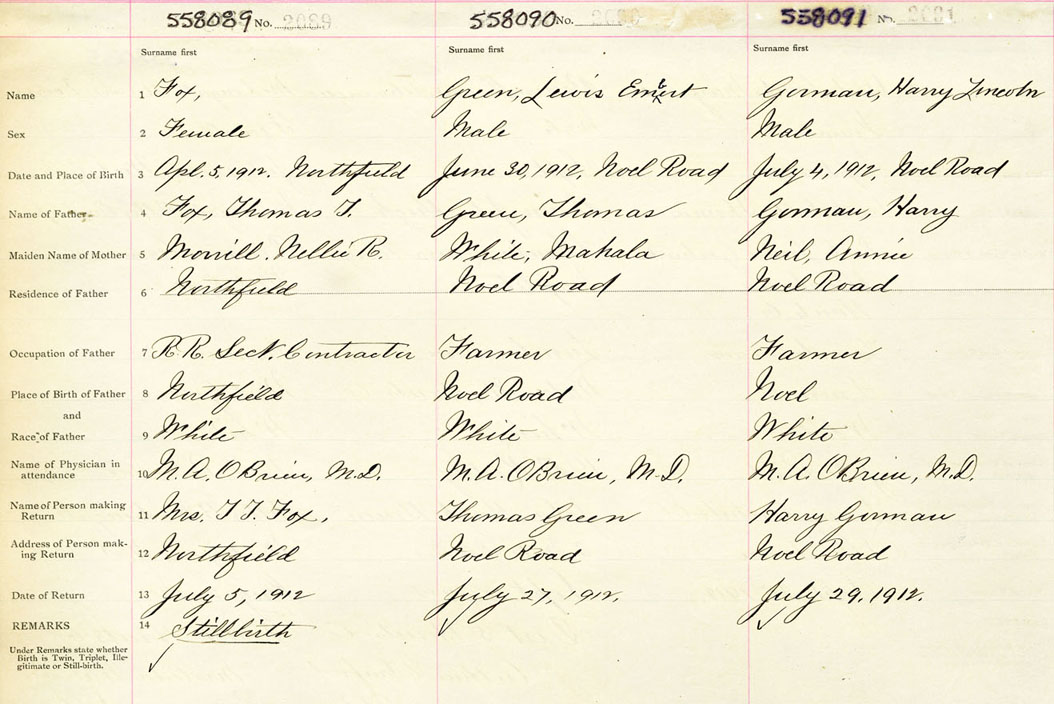 558089 No. 2089 558090 No. 558091 No. 2091
Surname first Surname first Surname first
Name 1 Fox, Green, Lewis Emert Gorman, Harry Lincoln
Sex 2 Female Male Male
Date and Place of Birth 3 Apl. 5, 1912. Northfield June 30, 1912, Noel Road July 4, 1912, Noel Road
Name of Father 4 Fox, Thomas T. Green, Thomas Gorman, Harry
Maiden Name of Mother 5 Morrill, Nellie R. White, Mahala Neil, Annie
Residence of Father 6 Northfield Noel Road Noel Road
Occupation of Father 7 R.R. Sect. Contractor Farmer Farmer
Place of Birth of Father 8 Northfield Noel Road Noel
and
Race of Father 9 White White White
Name of Physician in attendance 10 M. A. OBrien, M.D. M. A. OBrien, M.D. M. A. OBrien, M.D.
Name of Person making Return 11 Mrs. T T. Fox, Thomas Green Harry Gorman
Address of Person mak-ing Return 12 Northfield Noel Road Noel Road
Date of Return 13 July 5, 1912 July 27, 1912. July 29, 1912.
REMARKS 14 Stillbirth
Under Remarks state whether
Birth is Twin, Triplet, Ille-
gitimate or Still-birth.